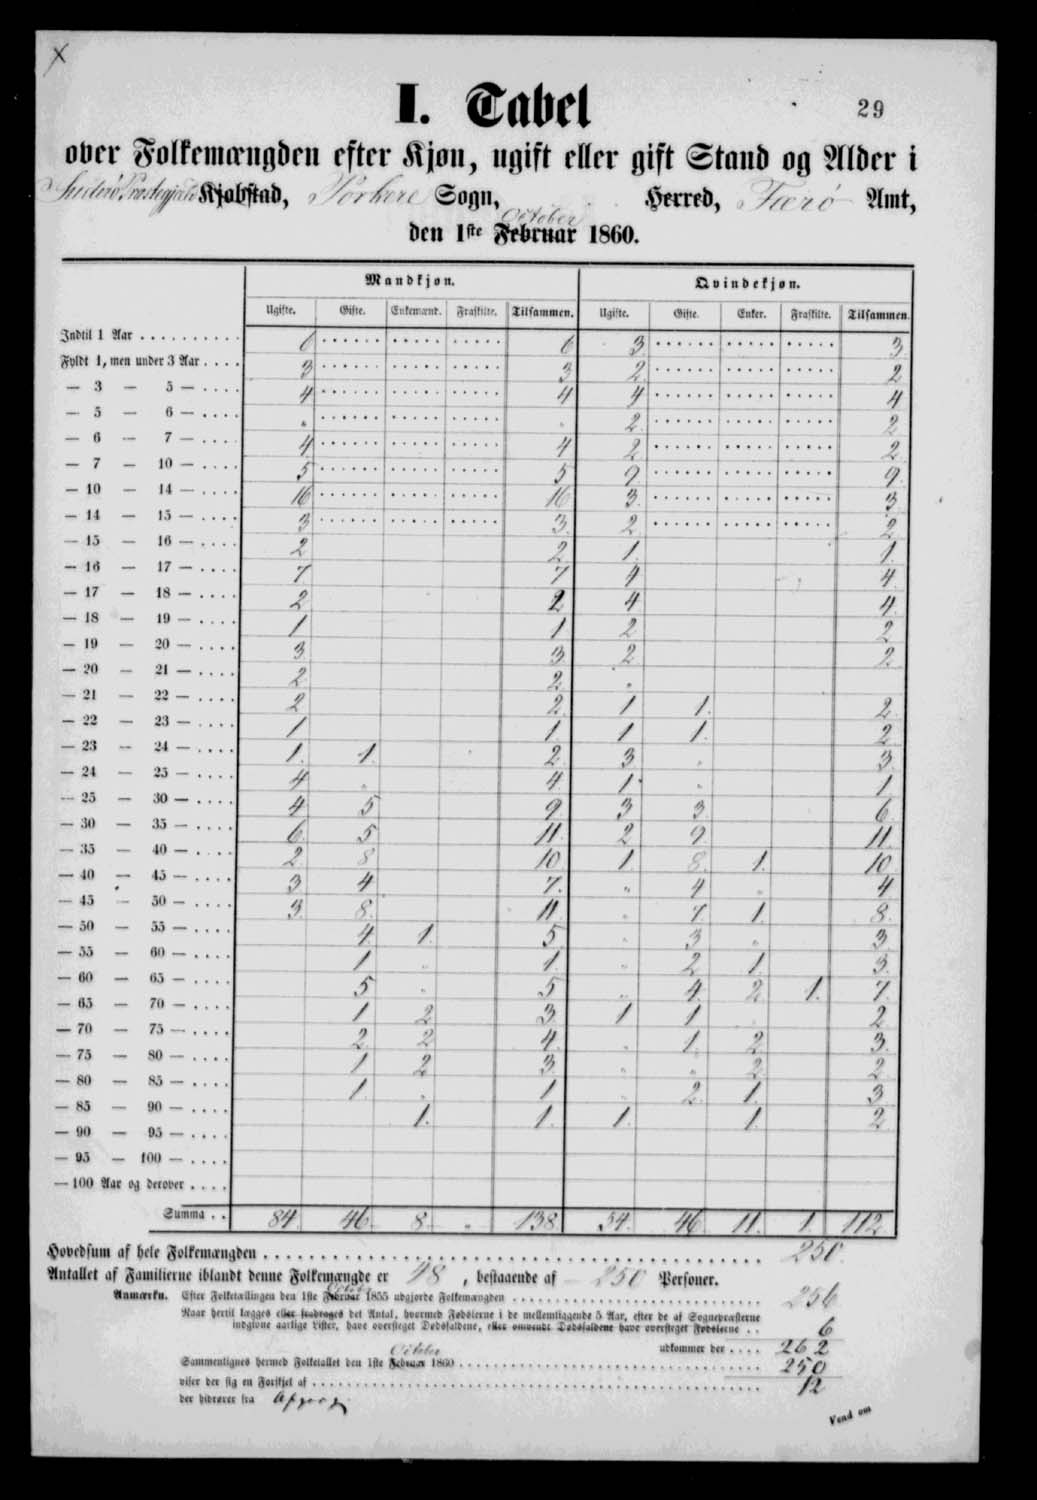 X
29
I. Tabel
over Folkemængden efter Kjøn, ugift eller gift Stand og Alder i
Suderø Præstegjæld Kjøbstad, Porkere Sogn, Herred, Færø Amt,
October
den 1ste Februar 1860.
Mandkjøn. Qvindekjøn.
Ugifte. Gifte. Enkemænd. Fraskilte. Tilsammen. Ugifte. Gifte. Enker. Fraskilte. Tilsammen.
Indtil 1 Aar 6 6 3 3
Fyldt 1, men under 3 Aar 3 3 2 2
— 3 — 5 — 4 4 4 4
— 5 — 6 — „ „ 2 2
— 6 — 7 — 4 4 2 2
— 7 — 10 — 5 5 9 9
— 10 — 14 — 16 16 3 3
— 14 — 15 — 3 3 2 2
— 15 — 16 — 2 2 1 1
— 16 — 17 — 7 7 4 4
— 17 — 18 — 2 2 4 4
— 18 — 19 — 1 1 2 2
— 19 — 20 — 3 3 2 2
— 20 — 21 — 2 2 „
— 21 — 22 — 2 2 1 1 2
— 22 — 23 — 1 1 1 1 2
— 23 — 24 — 1 1 2 3 „ 3
— 24 — 25 — 4 „ 4 1 „ 1
— 25 — 30 — 4 5 9 3 3 6
— 30 — 35 — 6 5 11 2 9 11
— 35 — 40 — 2 8 10 1 8 1 10
— 40 — 45 — 3 4 7 „ 4 „ 4
— 45 — 50 — 3 8 11 „ 7 1 8
— 50 — 55 — 4 1 5 „ 3 „ 3
— 55 — 60 — 1 „ 1 „ 2 1 3
— 60 — 65 — 5 „ 5 „ 4 2 1 7
— 65 — 70 — 1 2 3 1 1 2
— 70 — 75 — 2 2 4 „ 1 2 3
— 75 — 80 — 1 2 3 „ „ 2 2
— 80 — 85 — 1 „ 1 „ 2 1 3
— 85 — 90 — 1 1 1 1 2
— 90 — 95 —
— 95 — 100 —
— 100 Aar og derover
Summa 84 46 8 „ 138 54 46 11 1 112
Hovedsum af hele Folkemængden 250
Antallet af Familierne iblandt denne Folkemængde er 48, bestaaende af 250 Personer.
October
Anmærkn. Efter Folketællingen den 1ste Februar 1855 udgjorde Folkemængden 256
Naar hertil lægges eller fradrages det Antal, hvormed Fødslerne i de mellemliggende 5 Aar, efter de af Sognepræsterne
indgivne aarlige Lister, have oversteget Dødsfaldene, eller omvendt Dødsfaldene have oversteget Fødslerne 6
udkommer der 262
October
Sammenlignes hermed Folketallet den 1ste Februar 1860 250
viser der sig en Forskjel af 12
der hidrører fra Afgang
Vend om